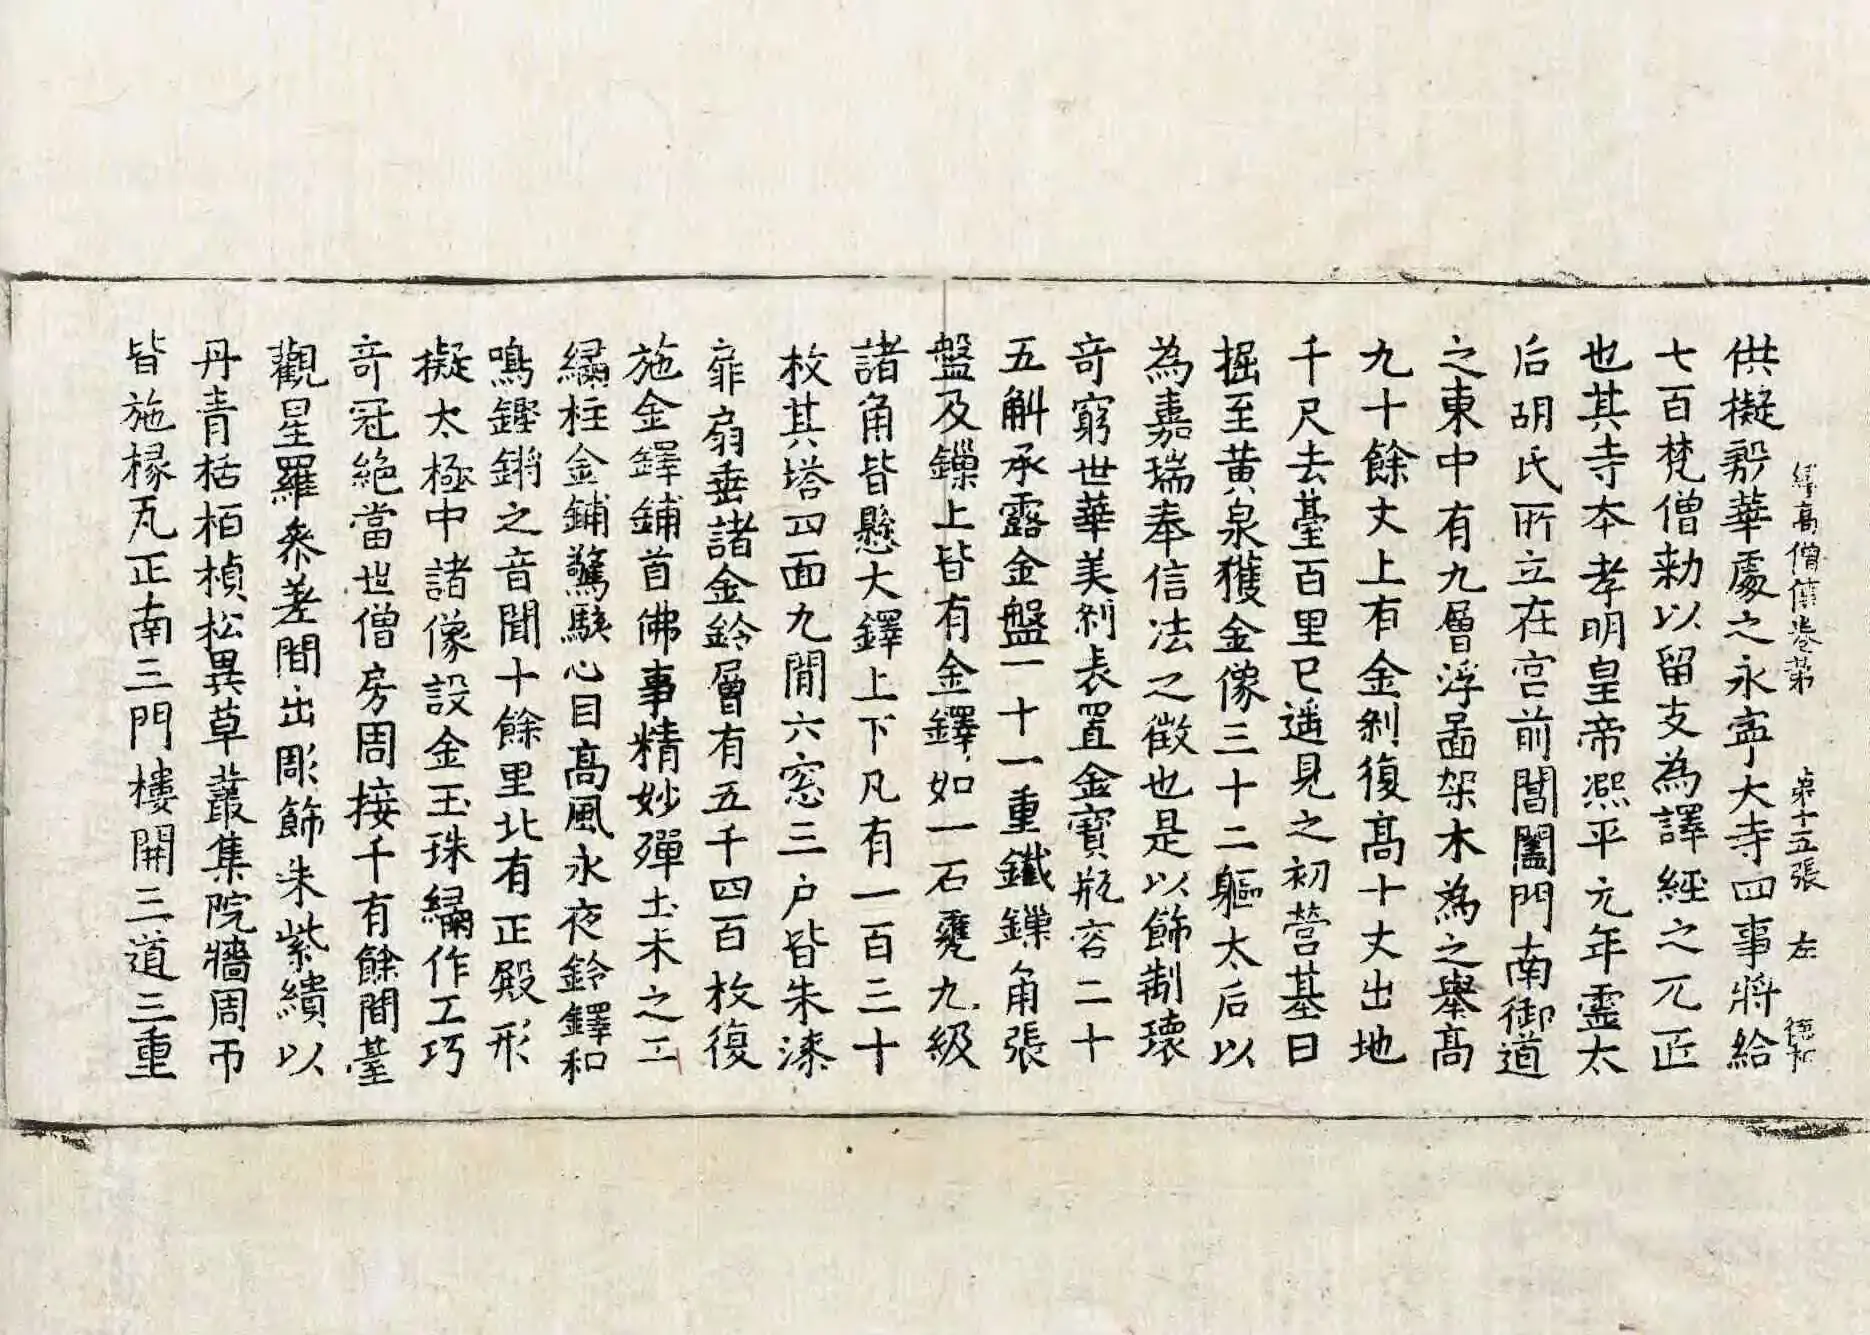 高僧傳卷第　　第十五張　左
供擬殷華處之永寧大寺四事將給
七百梵僧勑以留支為譯經之元匠
也其寺本孝明皇帝凞平元年靈太
后胡氏所立在宫前閶闔門南御道
之東中有九層浮啚架木為之舉髙
九十餘丈上有金刹復髙十丈出地
千尺去臺百里已遥見之初營基日
掘至黄泉獲金像三十二軀太后以
為嘉瑞奉信法之徴也是以飾制瓌
竒窮世華美刹表置金寶瓶容二十
五斛承露金盤一十一重鐵鏁角張
盤及鏁上皆有金鐸如一石甕九級
諸角皆懸大鐸上下凡有一百三十
枚其塔四面九閒六窓三户皆朱漆
扉扇垂諸金鈴層有五千四百枚復
施金鐸鋪首佛事精妙殫土木之工
繡柱金鋪驚駭心目髙風永夜鈴鐸和
鳴鏗鏘之音聞十餘里北有正殿形
擬太極中諸像設金玉珠繡作工巧
竒冠絶當世僧房周接千有餘間臺
觀星羅叅差間出彫飾朱紫繢以
丹青栝栢楨松異草叢集院牆周帀
皆施椽瓦正南三門樓開三道三重